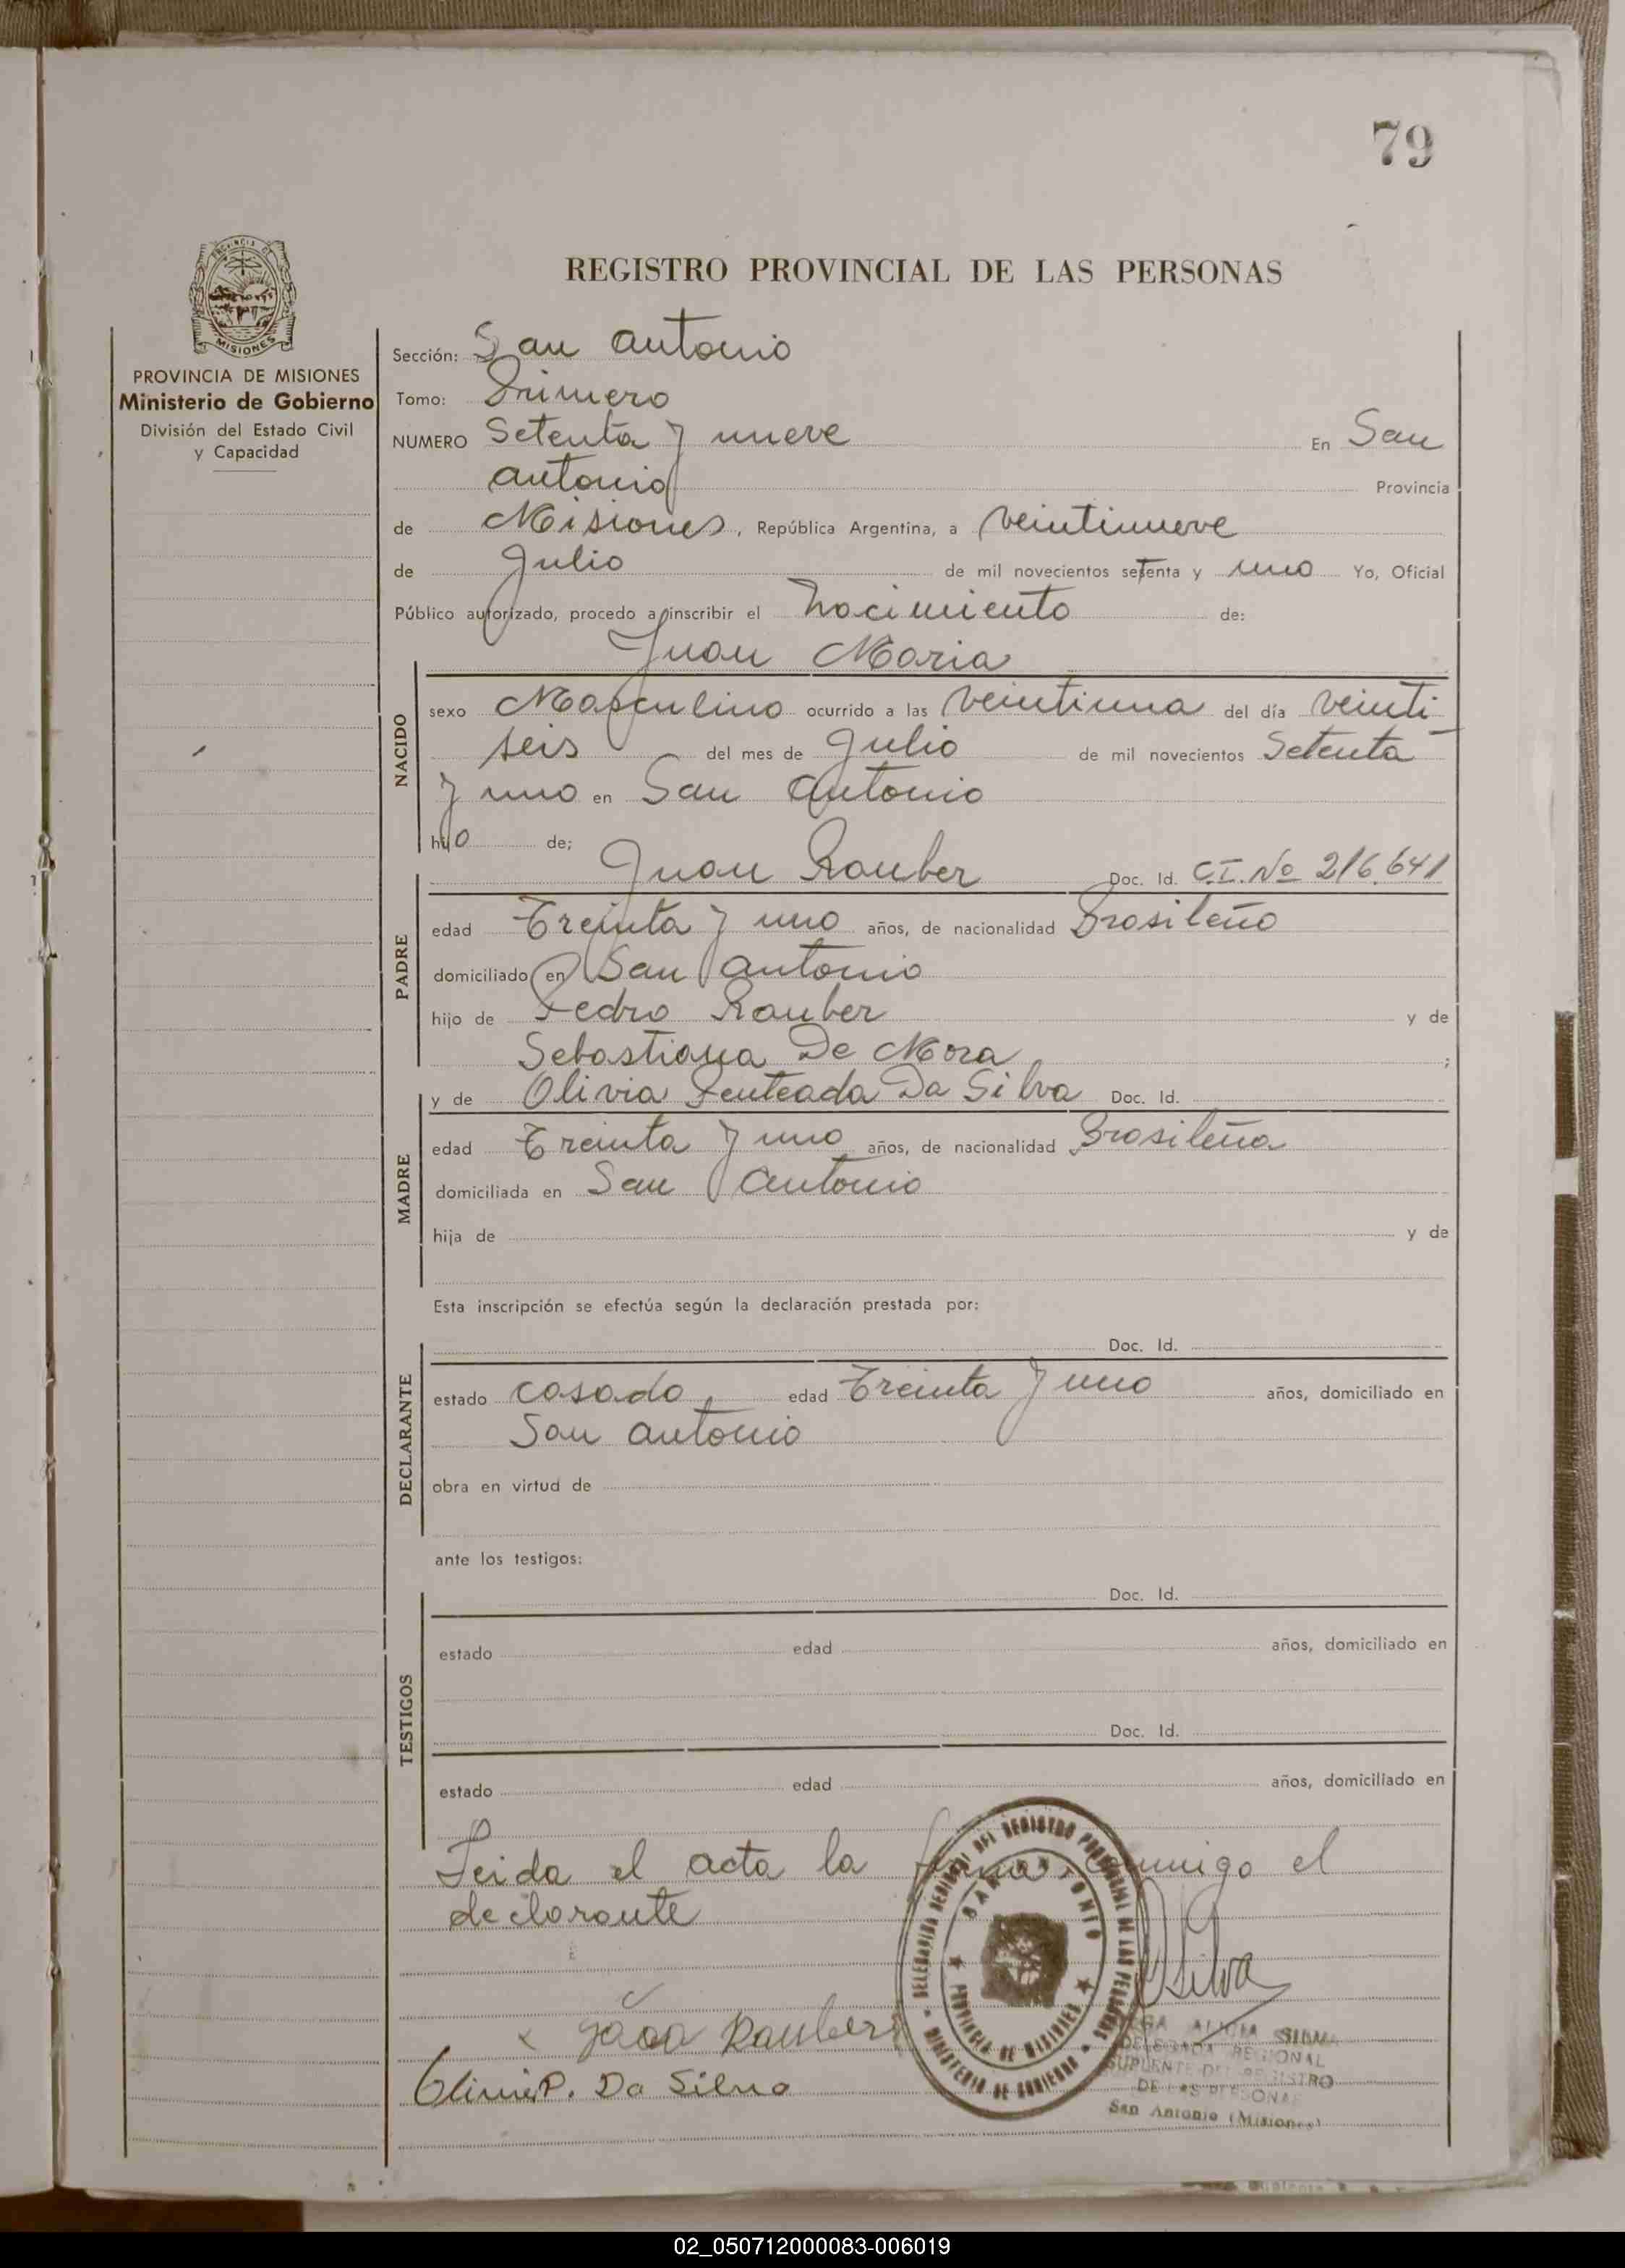 79
REGISTRO PROVINCIAL DE LAS PERSONAS
PROVINCIA DE MISIONES
Ministerio de Gobierno
División del Estado Civil
y Capacidad
Sección: San Antonio
Tomo: Primero
NUMERO Setenta y nueve En San
Antonio Provincia
de Misiones, República Argentina, a veintinueve
de Julio de mil novecientos setenta y uno Yo, Oficial
Público autorizado, procedo a inscribir el nacimiento de:
Juan Maria
NACIDO
sexo Masculino ocurrido a las veintiuna del día veinti
seis del mes de Julio de mil novecientos Setenta
y uno en San Antonio
hijo de;
Juan Rauber Doc. Id. C.I. No 216.641
PADRE
edad Treinta y uno años, de nacionalidad Brasileño
domiciliado en San Antonio
hijo de Pedro Rauber y de
Sebastiana De Mora ;
y de Olivia Penteada Da Silva Doc. Id.
MADRE
edad Treinta y uno años, de nacionalidad Brasileña
domiciliada en San Antonio
hija de y de
Esta inscripción se efectúa según la declaración prestada por:
Doc. Id.
DECLARANTE
estado casado, edad Treinta y uno años, domiciliado en
San Antonio
obra en virtud de
ante los testigos:
Doc. Id.
TESTIGOS
estado edad años, domiciliado en
Doc. Id.
estado edad años, domiciliado en
Leida el acta la firma conmigo el
declarante
DELEGACION REGIONAL DEL REGISTRO PROVINCIAL DE LAS PERSONAS
SAN ANTONIO
PROVINCIA DE MISIONES
MINISTERIO DE GOBIERNO
Silva
x João Rauber
ALICIA SILVA
DELEGADA REGIONAL
SUPLENTE DEL REGISTRO
DE LAS PERSONAS
San Antonio (Misiones)
Olivia P. Da Silva
02_050712000083-006019